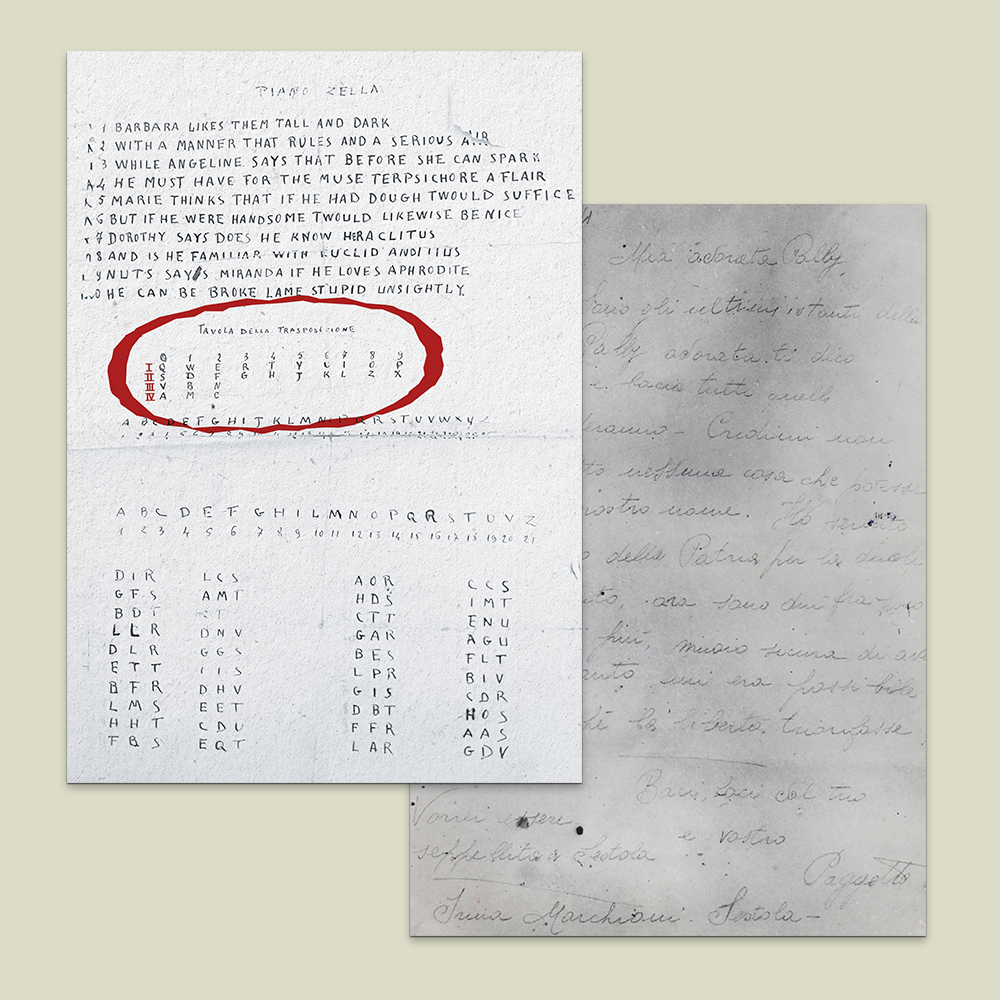 PIANO ZELLA
1 BARBARA LIKES THEM TALL AND DARK
2 WITH A MANNER THAT RULES AND A SERIOUS AIR
3 WHILE ANGELINE SAYS THAT BEFORE SHE CAN SPARK
4 HE MUST HAVE FOR THE MUSE TERPSICHORE A FLAIR
5 MARIE THINKS THAT IF HE HAD DOUGH TWOULD SUFFICE
6 BUT IF HE WERE HANDSOME TWOULD LIKEWISE BE NICE
7 DOROTHY SAYS DOES HE KNOW HERACLITUS
8 AND IS HE FAMILIAR WITH EUCLID AND
9 NUTS SAYS MIRANDA IF HE LOVES APHRODITE
HE CAN BE BROKE LAME STUPID UNSIGHTLY
TAVOLA DELLA TRASPOSIZIONE
0 1 2 3 4 5 6 7 8 9
I Q W E R T Y U I O P
II S D F G H J K L Z X
III V B N
IV A M C
A B C D E F G H I J K L M N O P Q R S T U V W X Y
A B C D E F G H I L M N O P Q R S T U V Z
1 2 3 4 5 6 7 8 9 10 11 12 13 14 15 16 17 18 19 20 21
DIR LCS AOR CCS
GFS AMT HDS IMT
BDT CTT ENU
LLR DNV GAR AGU
DLR GGS BES FLT
ETT IIS LPR BIV
BFR DHV GIS CDR
LMS EET DBT HOS
HHT CDU FFR AAS
FBS EQT LAR GDV
Mia adorata Pally
gli ultimi istanti della
Pally adorata ti dico
e bacia tutti quelli
Credimi non
nessuna cosa che potesse
nostro nome. Ho sentito
della Patria per la quale
ora sono qui fra poco
più, muoio sicura di
mi era possibile
la libertà trionfasse
Baci, baci dal tuo
e vostro
Paggetto
Vorrei essere
seppellita a Sestola
Irma Marchiani - Sestola -